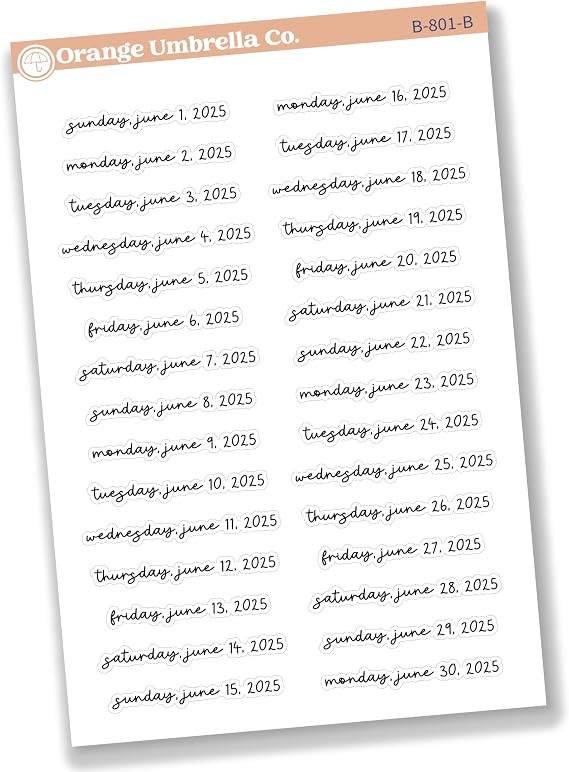 Orange Umbrella Co.
B-801-B
sunday, june 1, 2025
monday, june 2, 2025
tuesday, june 3, 2025
wednesday, june 4, 2025
thursday, june 5, 2025
friday, june 6, 2025
saturday, june 7, 2025
sunday, june 8, 2025
monday, june 9, 2025
tuesday, june 10, 2025
wednesday, june 11, 2025
thursday, june 12, 2025
friday, june 13, 2025
saturday, june 14, 2025
sunday, june 15, 2025
monday, june 16, 2025
tuesday, june 17, 2025
wednesday, june 18, 2025
thursday, june 19, 2025
friday, june 20, 2025
saturday, june 21, 2025
sunday, june 22, 2025
monday, june 23, 2025
tuesday, june 24, 2025
wednesday, june 25, 2025
thursday, june 26, 2025
friday, june 27, 2025
saturday, june 28, 2025
sunday, june 29, 2025
monday, june 30, 2025